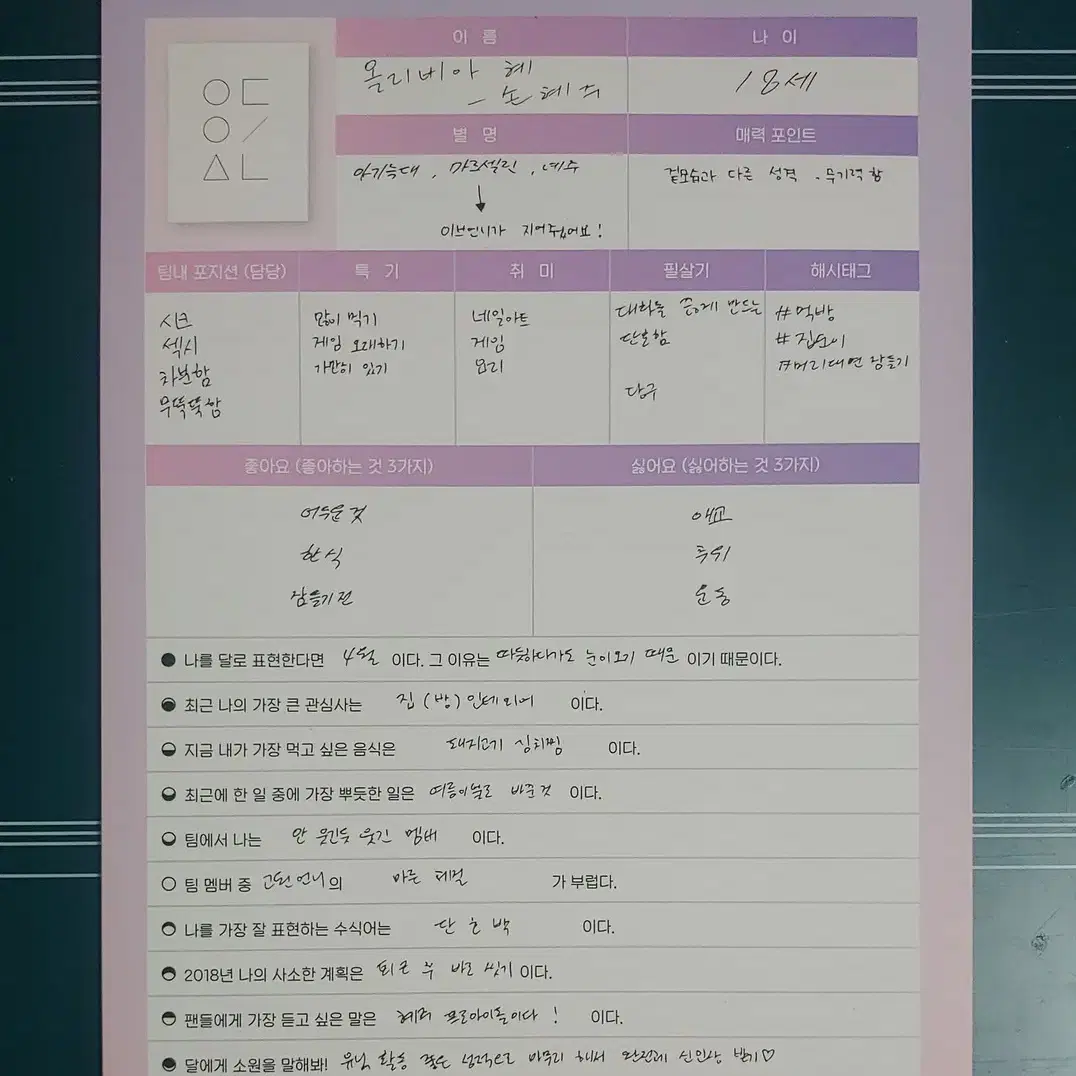 이름
나이
올리비아 혜
- 손혜주
18세
별명
매력 포인트
아기늑대, 마르셀린, 혜주
↓
이브언니가 지어줬어요!
겉모습과 다른 성격, 무기력함
팀내 포지션 (담당)
특기
취미
필살기
해시태그
시크
섹시
차분함
무뚝뚝함
많이 먹기
게임 오래하기
가만히 있기
네일아트
게임
요리
대화를 좋게 만드는
단호함
당구
#먹방
#집순이
#머리대면 잠들기
좋아요 (좋아하는 것 3가지)
싫어요 (싫어하는 것 3가지)
어두운 것
한식
잠들기 전
애교
추위
운동
나를 달로 표현한다면 4월 이다. 그 이유는 따듯하다가도 눈이 오기 때문 이기 때문이다.
최근 나의 가장 큰 관심사는 집(방) 인테리어 이다.
지금 내가 가장 먹고 싶은 음식은 돼지고기 김치찜 이다.
최근에 한 일 중에 가장 뿌듯한 일은 여름이불로 바꾼 것 이다.
팀에서 나는 안 웃긴듯 웃긴 멤버 이다.
팀 멤버 중 고원언니의 마른 체질 가 부럽다.
나를 가장 잘 표현하는 수식어는 단호박 이다.
2018년 나의 사소한 계획은 퇴근 후 바로 씻기 이다.
팬들에게 가장 듣고 싶은 말은 혜주 프로아이돌이다! 이다.
달에게 소원을 말해봐! 유닛 활동 좋은 성적으로 마무리 해서 완전체 신인상 받기♡